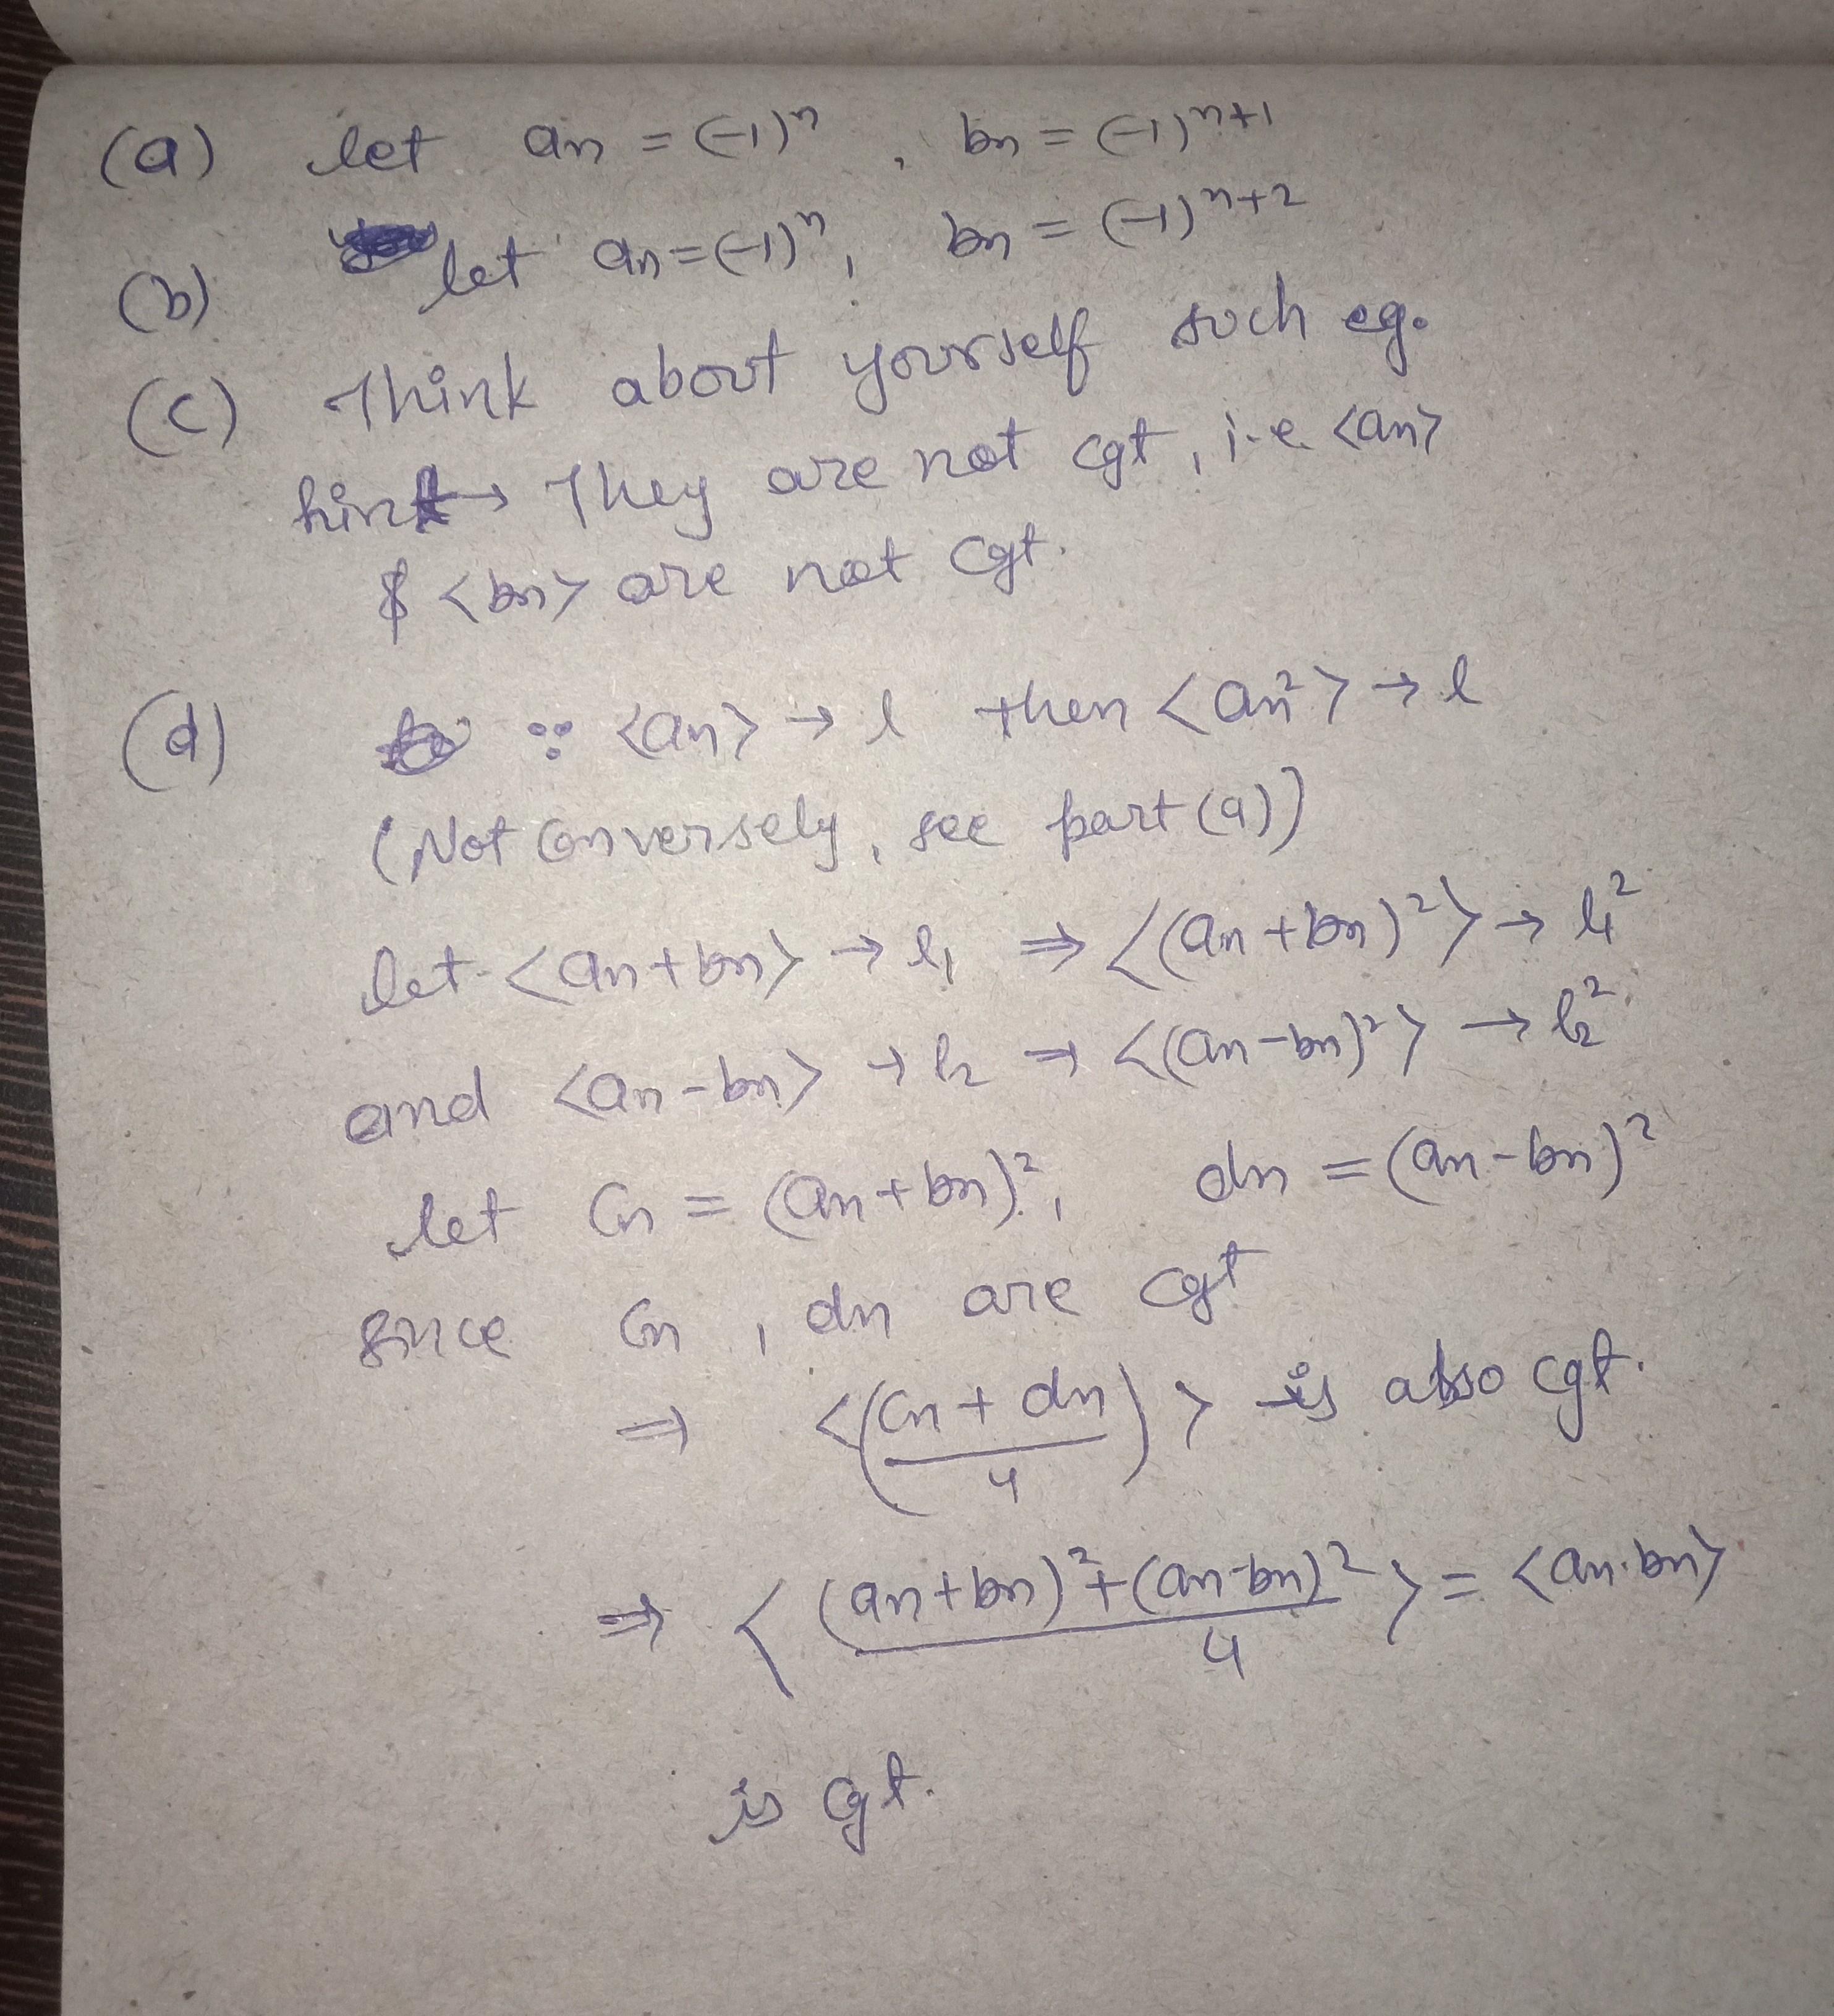 (a) let an = (-1)ⁿ, bn = (-1)ⁿ⁺¹
(b) let an = (-1)ⁿ, bn = (-1)ⁿ⁺²
(c) Think about yourself such eg.
hint → They are not cgt, i.e. <an>
& <bn> are not cgt.
(d) ∵ <an> → l then <an²> → l
(Not Conversely, see part (a))
let <an+bn> → l₁ ⇒ <(an+bn)²> → l₁²
and <an-bn> → l₂ ⇒ <(an-bn)²> → l₂²
let Cn = (an+bn)², dn = (an-bn)²
since Cn, dn are cgt
⇒ <((Cn+dn)/4)> is also cgt.
⇒ <((an+bn)²+(an-bn)²)/4> = <an.bn>
is cgt.